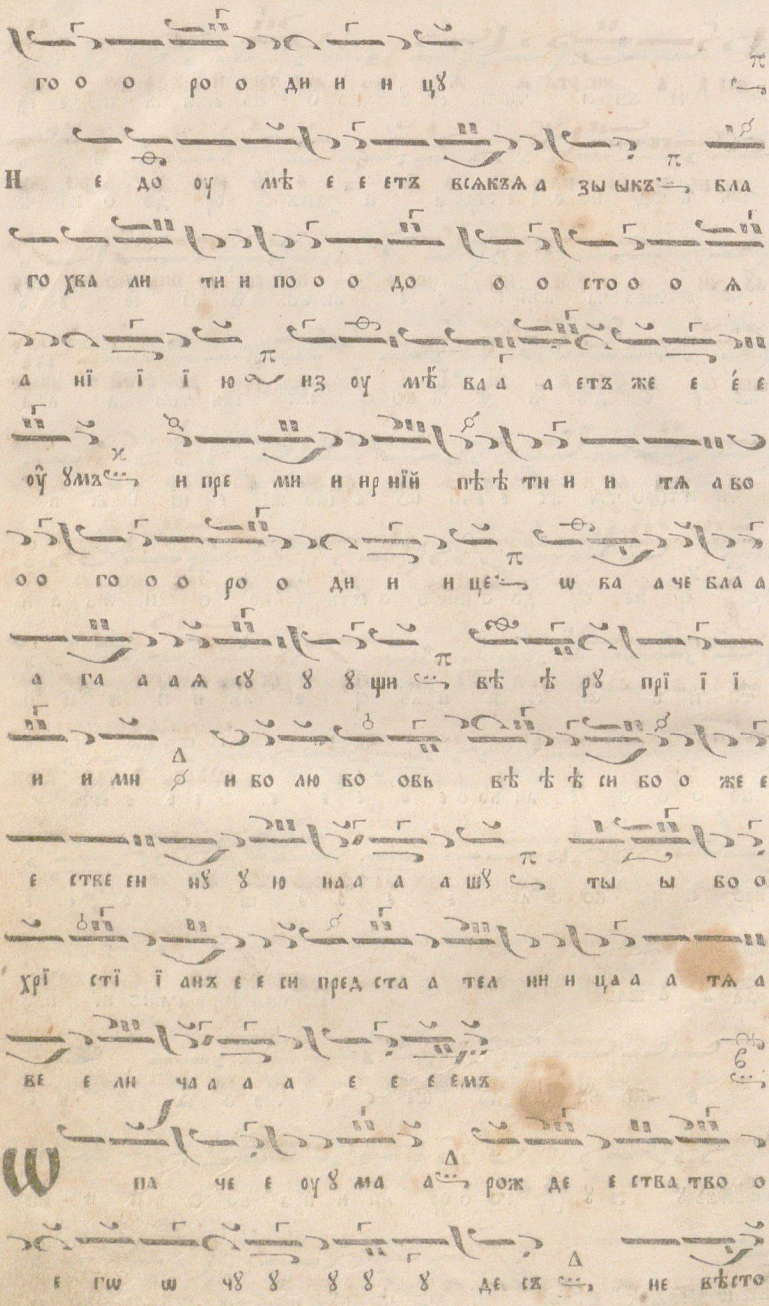 го о о ро о ди и и цꙋ
Н е до оу мѣ е е етъ всякъѧ а зы ыкъ бла
го хва ли ти и по о о до о о сто о о ѧ
а нї ї ї ю из оу мѣ ва а а етъ же е е е
оу ꙋмъ и пре ми и ирнїй пѣ ѣ ти и и тѧ а бо
о о го о о ро о ди и и це ѡ ба а че бла а
а га а а ѧ сꙋ ꙋ ꙋ щи вѣ ѣ рꙋ прї ї ї
и и ми и бо лю бо овь вѣ ѣ ѣ си бо о же е
е стве ен нꙋ ꙋ ю на а а а шꙋ ты ы бо о
хрї стї ї анъ е е си пред ста а тел ни и ца а а тѧ а
ве е ли ча а а а е е е емъ
Ѡ па че е оу ꙋ ма а рож де е ства тво о
е гѡ ѡ чꙋ ꙋ ꙋ ꙋ ꙋ де съ не вѣсто